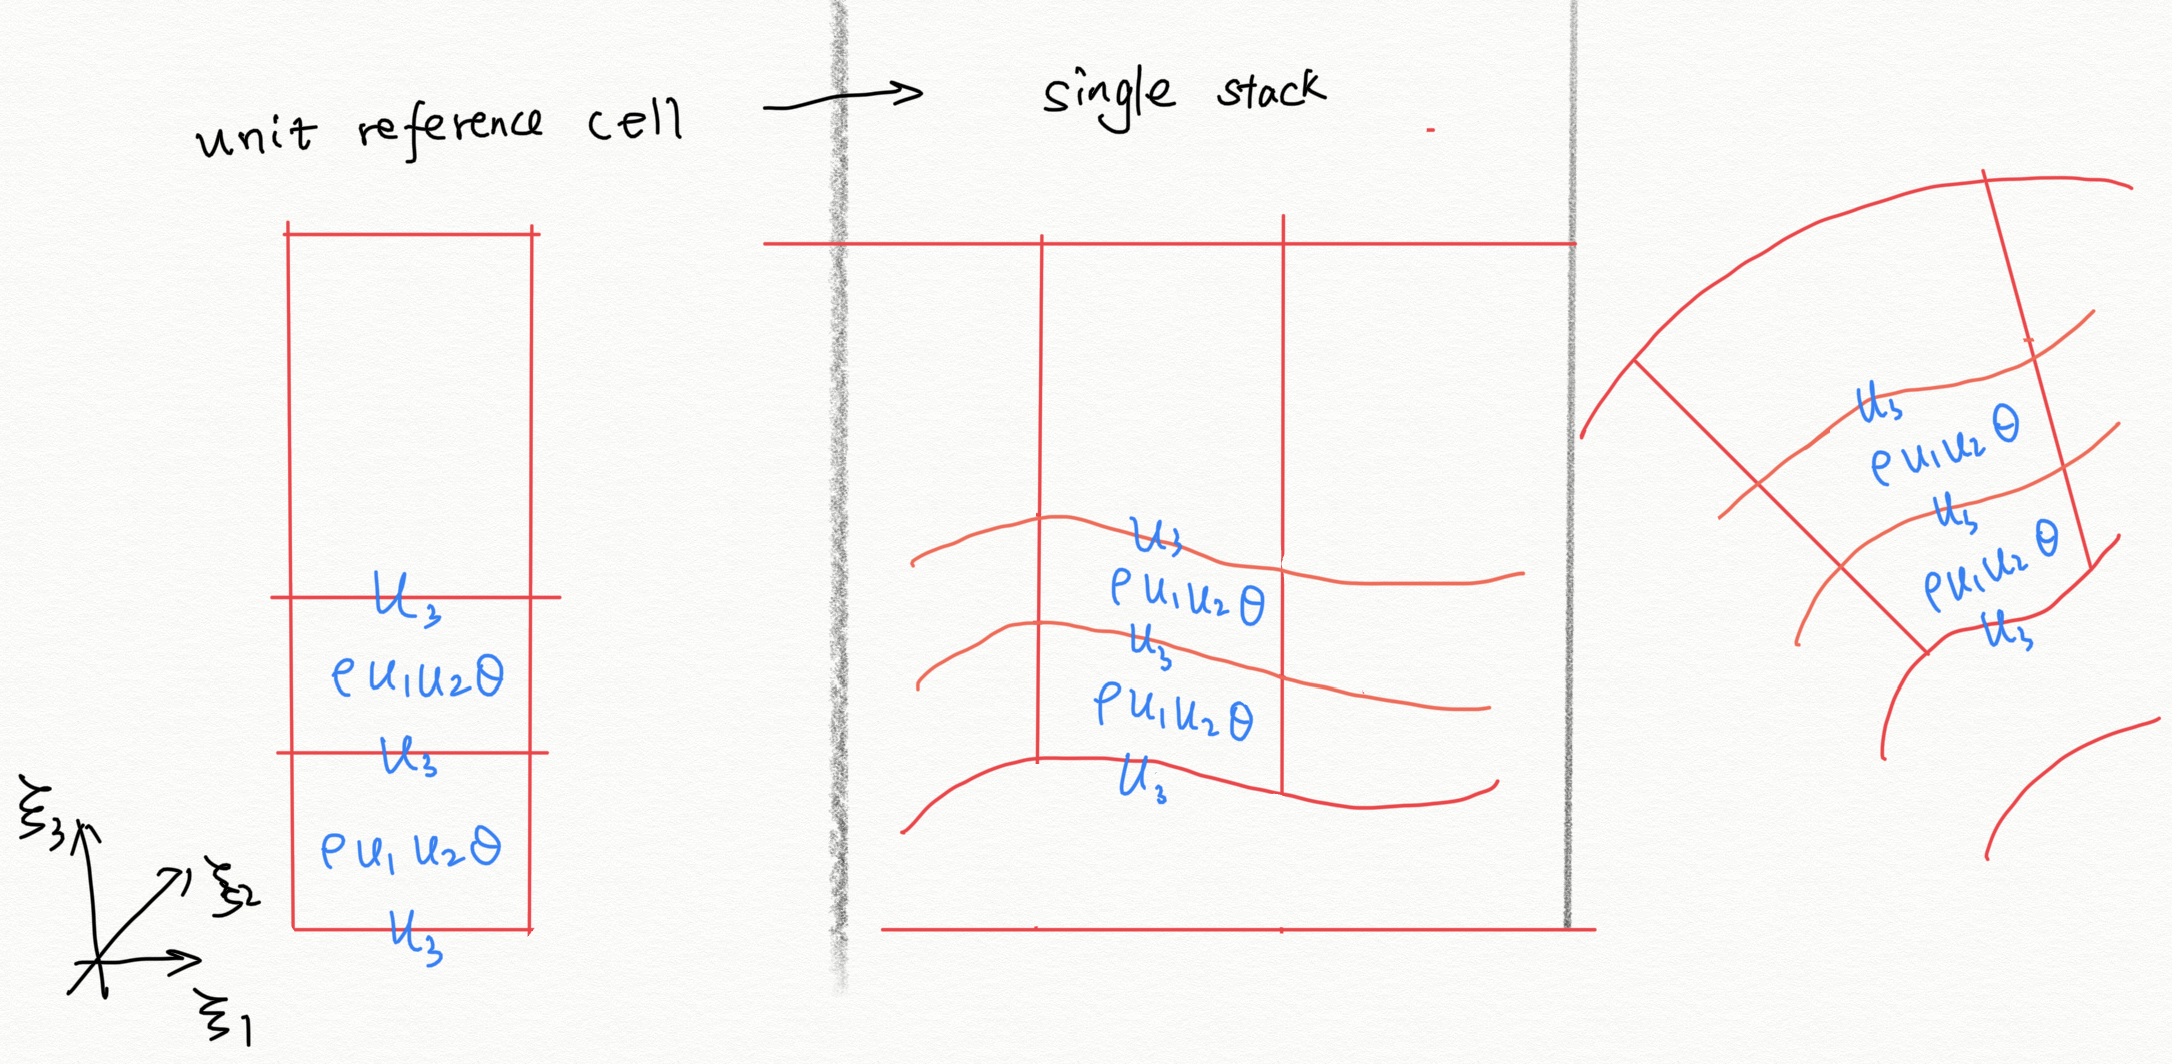 unit reference cell → single stack
u₃
ρ u₁ u₂ θ
u₃
ρ u₁ u₂ θ
u₃
ξ₃
ξ₂
ξ₁
u₃
ρ u₁ u₂ θ
u₃
ρ u₁ u₂ θ
u₃
u₃
ρ u₁ u₂ θ
u₃
ρ u₁ u₂ θ
u₃